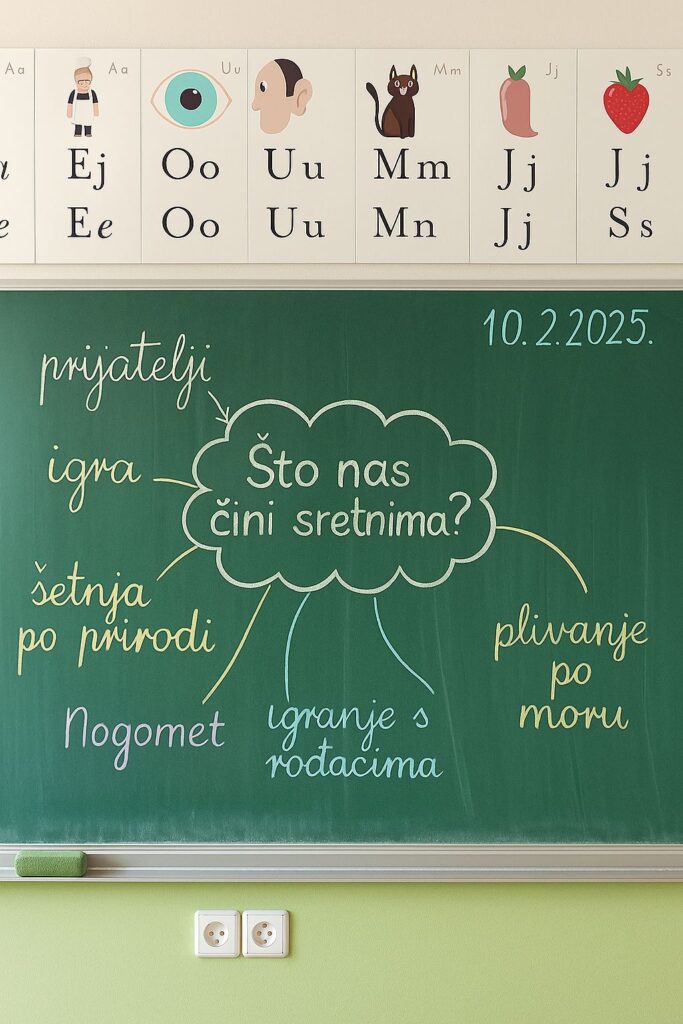 Aa
Aa
Uu
Mm
Jj
Ss
a Ej Oo Uu Mm Jj Jj
e Ee Oo Uu Mn Jj Ss
10.2.2025.
prijatelji
igra
Što nas
čini sretnima?
šetnja
po prirodi
Nogomet
igranje s
rođacima
plivanje
po
moru